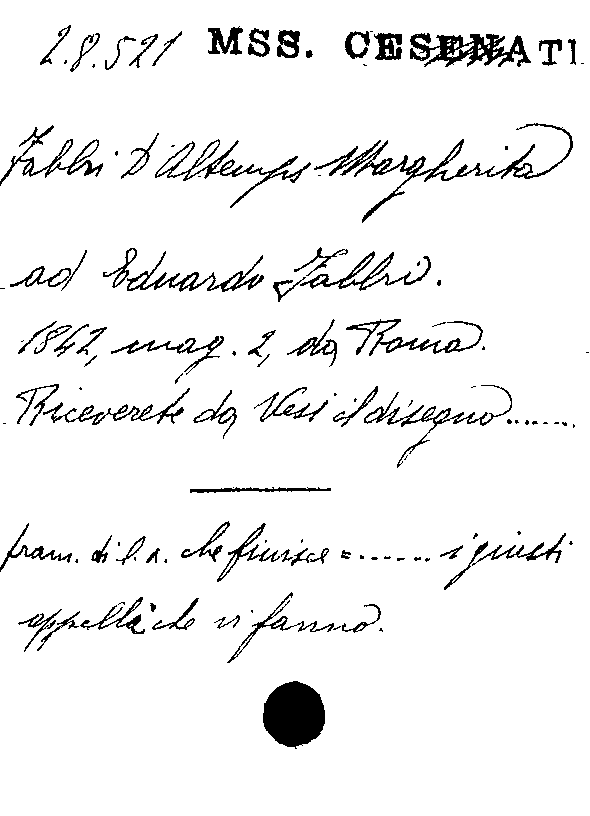 2.8.521 MSS. CESENATI
Fabbri D'Altemps Margherita
ad Eduardo Fabbri.
1842, mag. 2, da Roma.
Riceverete da Vesi il disegno.......
fram. di l. a. che finisce =....... i giusti
appelli che vi fanno.